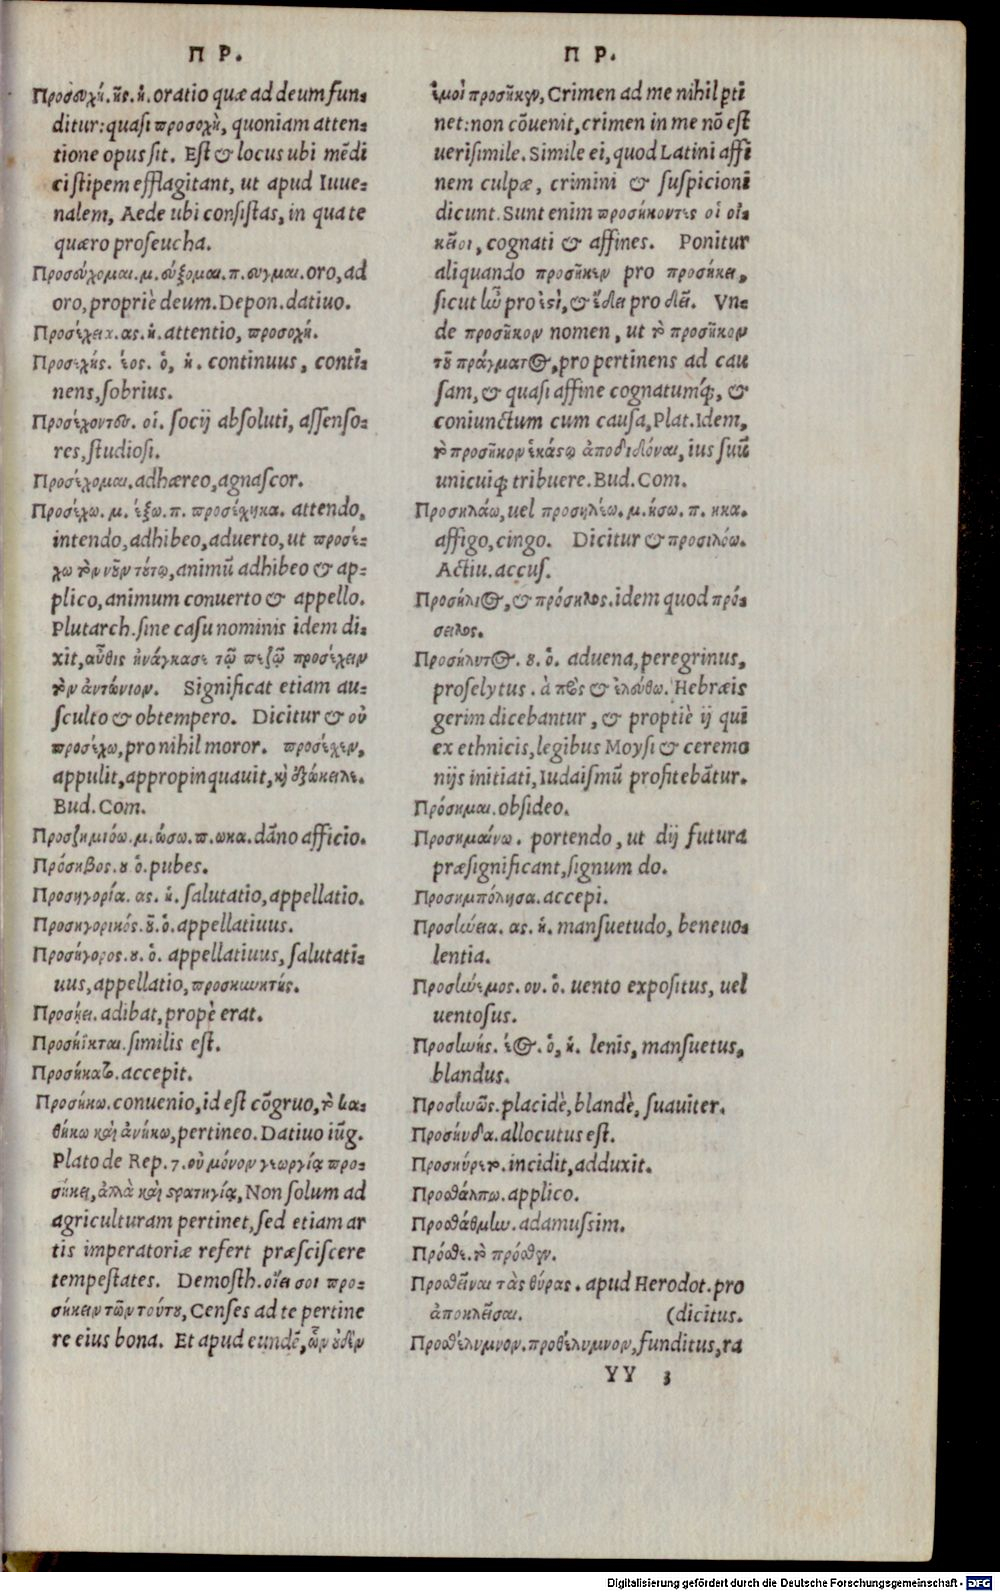 Π Ρ.
Προσευχή. ῆς. ἡ. oratio quæ ad deum fun=
ditur: quasi προσοχὴ, quoniam atten=
tione opus sit. Est & locus ubi mēdi
ci stipem efflagitant, ut apud Iuue=
nalem, Aede ubi consistas, in qua te
quæro proseucha.
Προσεύχομαι. μ. εύξομαι. π. ευγμαι. oro, ad
oro, propriè deum. Depon. datiuo.
Προσέχεια. ας. ἡ. attentio, προσοχή.
Προσεχής. έος. ὁ, ἡ. continuus, conti=
nens, sobrius.
Προσέχοντες. οἱ. socij absoluti, assenso=
res, studiosi.
Προσέχομαι. adhæreo, agnascor.
Προσέχω. μ. έξω. π. προσέχηκα. attendo,
intendo, adhibeo, aduerto, ut προσέ=
χω τὸν νοῦν τούτῳ, animū adhibeo & ap=
plico, animum conuerto & appello.
Plutarch. sine casu nominis idem di=
xit, αὖθις ἠνάγκασε τῷ πεζῷ προσέχειν
τὸν ἀντώνιον. Significat etiam au=
sculto & obtempero. Dicitur & οὐ
προσέχω, pro nihil moror. προσέχεν,
appulit, appropinquauit, καὶ ἐξώκειλε.
Bud. Com.
Προσζημιόω. μ. ώσω. π. ωκα. dāno afficio.
Πρόσηβος. ου ὁ. pubes.
Προσηγορία. ας. ἡ. salutatio, appellatio.
Προσηγορικός. οῦ. ὁ. appellatiuus.
Προσήγορος. ου. ὁ. appellatiuus, salutati=
uus, appellatio, προσηνητής.
Προσήει. adibat, propè erat.
Προσήϊκται. similis est.
Προσήκατο. accepit.
Προσήκω. conuenio, id est cōgruo, τὸ κα=
θήκω καὶ ἀνήκω, pertineo. Datiuo iūg.
Plato de Rep. 7. οὐ μόνον γεωργίᾳ προ=
σήκει, ἀλλὰ καὶ στρατηγίᾳ, Non solum ad
agriculturam pertinet, sed etiam ar
tis imperatoriæ refert præsciscere
tempestates. Demosth. οἴει σοι προ=
σήκειν τῶν τούτου, Censes ad te pertine
re eius bona. Et apud eundē, ὧν οὐδὲν
Π Ρ.
ἐμοὶ προσῆκον, Crimen ad me nihil pti
net: non cōuenit, crimen in me nō est
uerisimile. Simile ei, quod Latini affi
nem culpæ, crimini & suspicioni
dicunt. Sunt enim προσήκοντες οἱ οἰ=
κεῖοι, cognati & affines. Ponitur
aliquando προσῆκεν pro προσήκει,
sicut ἦν pro ἐστὶ, & ἔδει pro δεῖ. Vn=
de προσῆκον nomen, ut τὸ προσῆκον
τοῦ πράγματος, pro pertinens ad cau
sam, & quasi affine cognatumq́;, &
coniunctum cum causa, Plat. Idem,
τὸ προσῆκον ἑκάστῳ ἀποδιδόναι, ius suū
unicuiq; tribuere. Bud. Com.
Προσηλάω, uel προσηλέω. μ. ήσω. π. ηκα.
affigo, cingo. Dicitur & προσιλόω.
Actiu. accus.
Προσήλιος, & πρόσηλος. idem quod πρό=
σειλος.
Προσήλυτος. ου. ὁ. aduena, peregrinus,
proselytus. ἀ πρὸς & ἐλεύθω. Hebræis
gerim dicebantur, & propriè ij qui
ex ethnicis, legibus Moysi & ceremo
nijs initiati, Iudaismū profitebātur.
Πρόσημαι. obsideo.
Προσημαίνω. portendo, ut dij futura
præsignificant, signum do.
Προσημπόλησα. accepi.
Προσήνεια. ας. ἡ. mansuetudo, beneuo=
lentia.
Προσήνεμος. ου. ὁ. uento expositus, uel
uentosus.
Προσηνής. έος. ὁ, ἡ. lenis, mansuetus,
blandus.
Προσηνῶς. placidè, blandè, suauiter.
Προσήυδα. allocutus est.
Προσηύρετο. incidit, adduxit.
Προσθάλπω. applico.
Προσθάθμην. adamussim.
Πρόσθε. τὸ πρόσθεν.
Προσθεῖναι τὰς θύρας. apud Herodot. pro
ἀποκλεῖσαι. (dicitus.
Προσθέλυμνον. προθέλυμνον, funditus, ra
YY 3
Digitalisierung gefördert durch die Deutsche Forschungsgemeinschaft - DFG